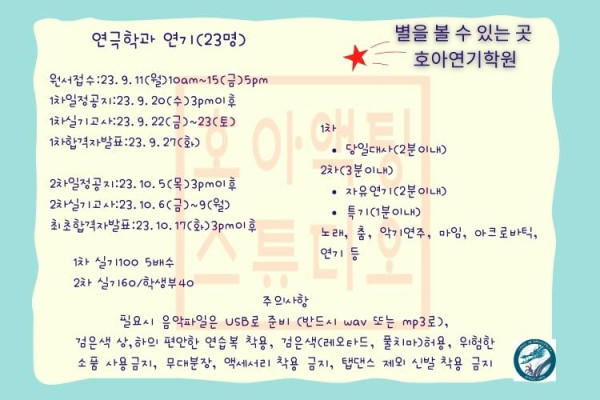 연극학과 연기(23명)
별을 볼 수 있는 곳
호아연기학원
원서접수:23.9.11(월)10am~15(금)5pm
1차일정공지:23.9.20(수)3pm이후
1차실기고사:23.9.22(금)~23(토)
1차합격자발표:23.9.27(화)
2차일정공지:23.10.5(목)3pm이후
2차실기고사:23.10.6(금)~9(월)
최초합격자발표:23.10.17(화)3pm이후
1차 실기100 5배수
2차 실기60/학생부40
1차
• 당일대사(2분이내)
2차(3분이내)
• 자유연기(2분이내)
• 특기(1분이내)
노래, 춤, 악기연주, 마임, 아크로바틱,
연기 등
주의사항
필요시 음악파일은 USB로 준비 (반드시 wav 또는 mp3로),
검은색 상,하의 편안한 연습복 착용, 검은색(레오타드, 풀치마)허용, 위험한
소품 사용금지, 무대분장, 액세서리 착용 금지, 탭댄스 제외 신발 착용 금지
호아액팅
스튜디오